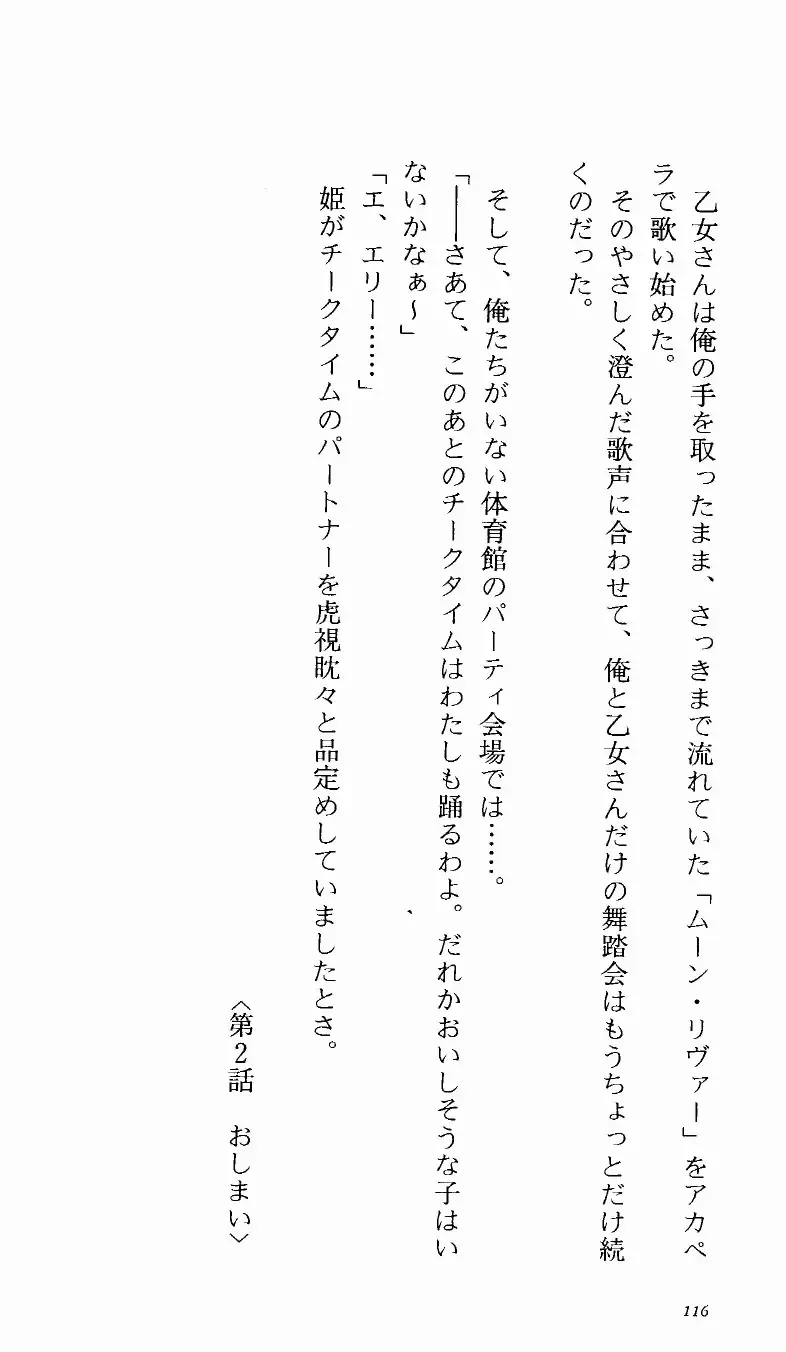 乙女さんは俺の手を取ったまま、さっきまで流れていた「ムーン・リヴァー」をアカペ
ラで歌い始めた。
　そのやさしく澄んだ歌声に合わせて、俺と乙女さんだけの舞踏会はもうちょっとだけ続
くのだった。
　そして、俺たちがいない体育館のパーティ会場では……。
「――さあて、このあとのチークタイムはわたしも踊るわよ。だれかおいしそうな子はい
ないかなぁ～」
「エ、エリー……」
　姫がチークタイムのパートナーを虎視眈々と品定めしていましたとさ。
〈第2話　おしまい〉
116